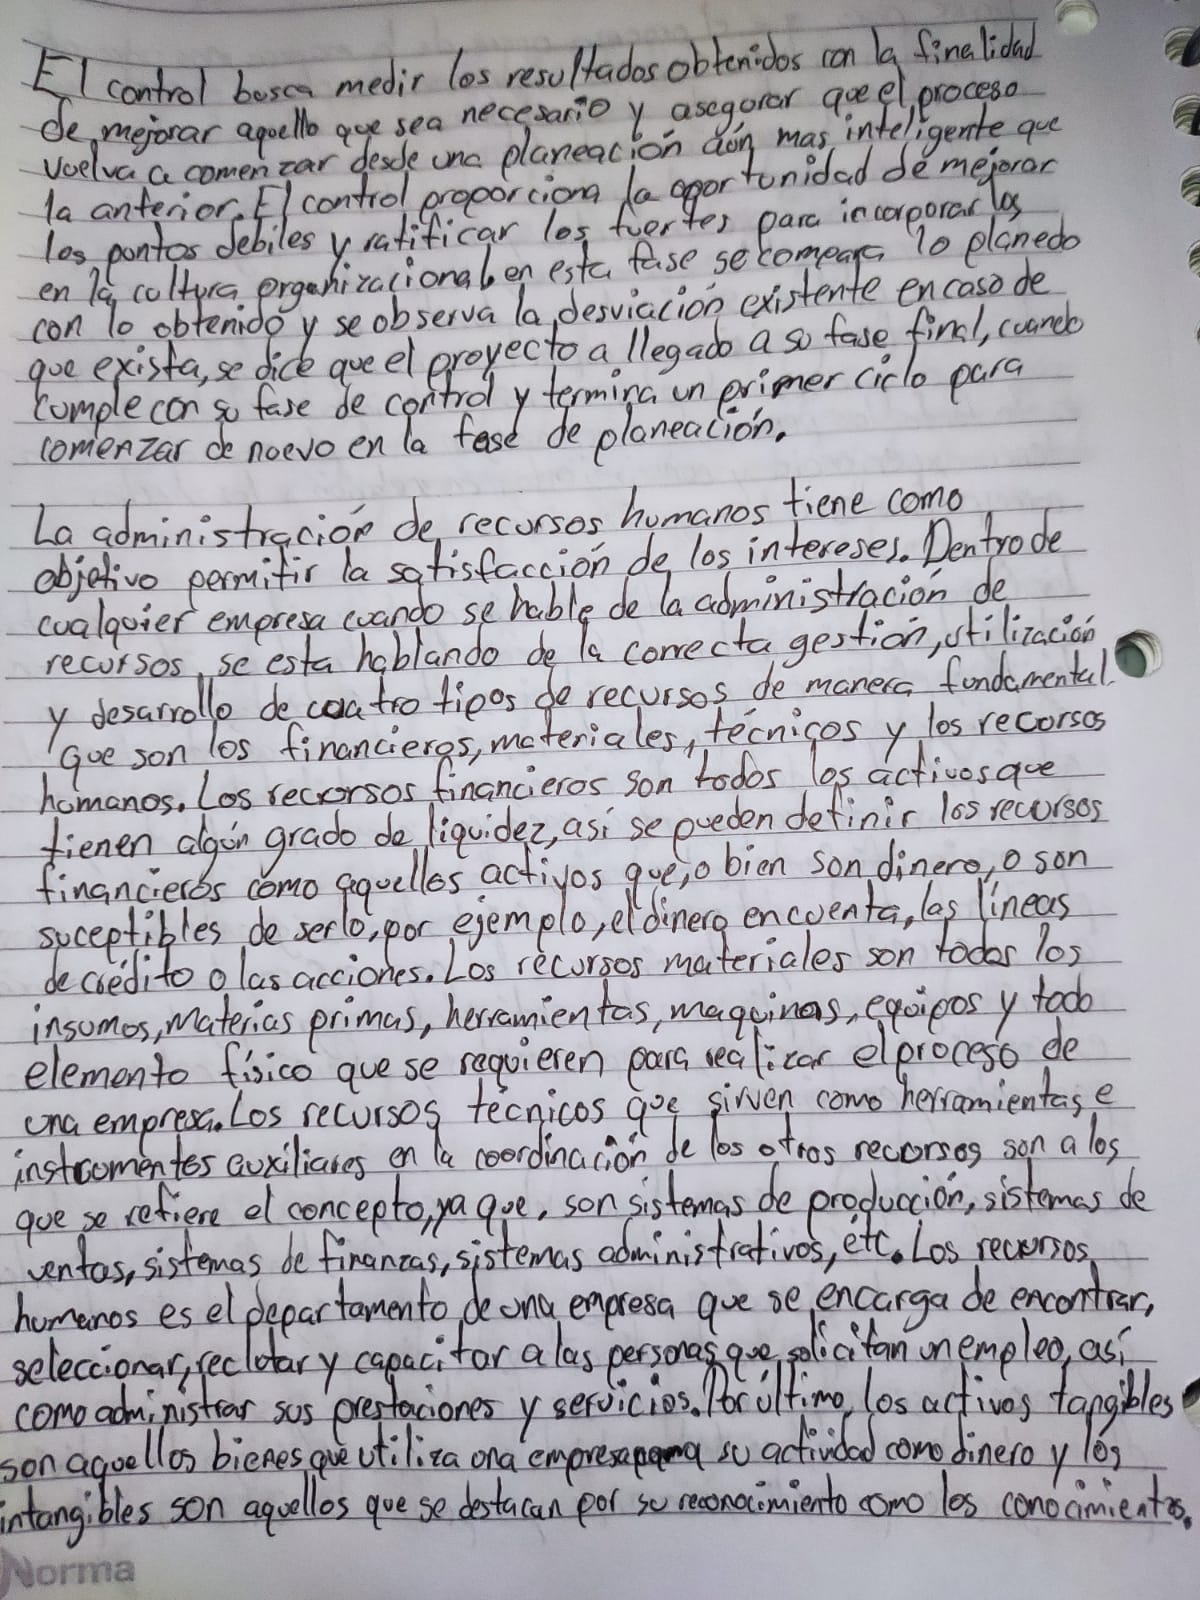 El control busca medir los resultados obtenidos con la finalidad
de mejorar aquello que sea necesario y asegurar que el proceso
vuelva a comenzar desde una planeación aún mas inteligente que
la anterior. El control proporciona la oportunidad de mejorar
los puntos debiles y ratificar los fuertes para incorporarlos
en la cultura organizacional, en esta fase se compara lo planedo
con lo obtenido y se observa la desviación existente en caso de
que exista, se dice que el proyecto a llegado a su fase final, cuando
cumple con su fase de control y termina un primer ciclo para
comenzar de nuevo en la fase de planeación.
La administración de recursos humanos tiene como
objetivo permitir la satisfacción de los intereses. Dentro de
cualquier empresa cuando se hable de la administración de
recursos, se esta hablando de la correcta gestión, utilización
y desarrollo de cuatro tipos de recursos de manera fundamental.
que son los financieros, materiales, técnicos y los recursos
humanos. Los recursos financieros son todos los activos que
tienen algún grado de liquidez, así se pueden definir los recursos
financieros como aquellos activos que, o bien son dinero, o son
suceptibles de serlo, por ejemplo, el dinero en cuenta, las líneas
de crédito o las acciones. Los recursos materiales son todos los
insumos, materias primas, herramientas, maquinas, equipos y todo
elemento físico que se requieren para realizar el proceso de
una empresa. Los recursos técnicos que sirven como herramientas e
instrumentos auxiliares en la coordinación de los otros recursos son a los
que se refiere el concepto, ya que, son sistemas de producción, sistemas de
ventas, sistemas de finanzas, sistemas administrativos, étc. Los recursos
humanos es el departamento de una empresa que se encarga de encontrar,
seleccionar, reclutar y capacitar a las personas que solicitan un empleo, así
como administrar sus prestaciones y servicios. Por último, los activos tangibles
son aquellos bienes que utiliza una empresa para su actividad como dinero y los
intangibles son aquellos que se destacan por su reconocimiento como los conocimientos.
Norma